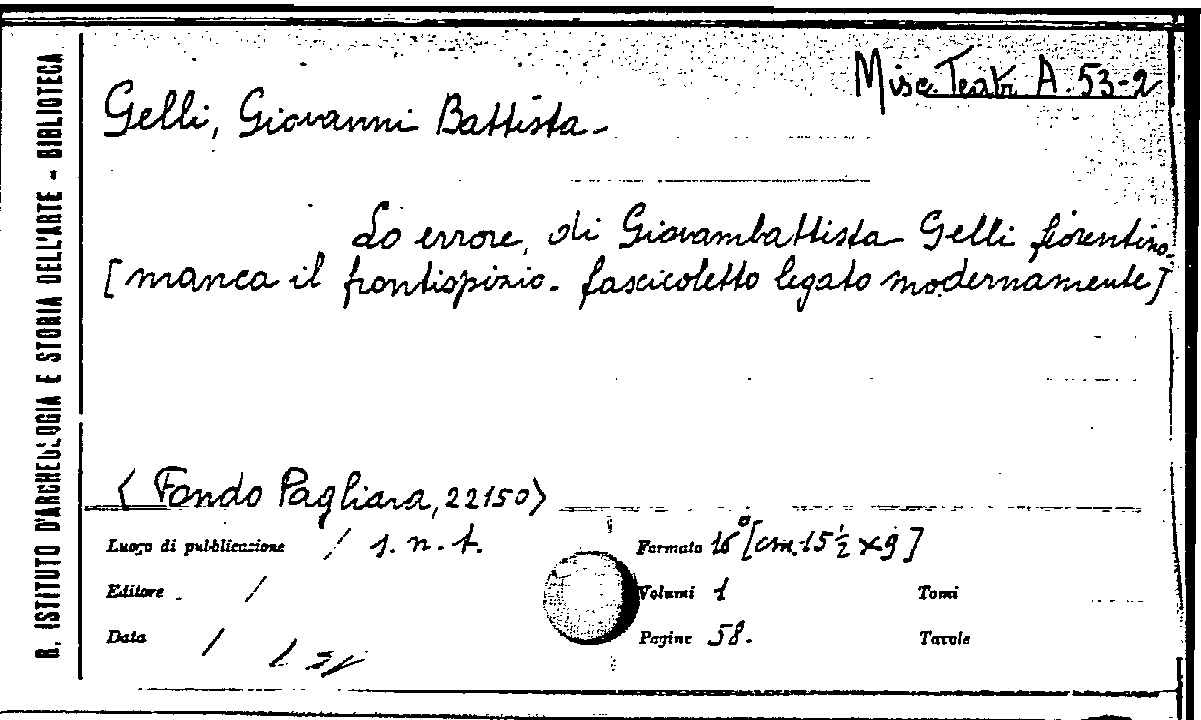 R. ISTITUTO D'ARCHEOLOGIA E STORIA DELL'ARTE - BIBLIOTECA
Misc. Teatr A. 53-2
Gelli, Giovanni Battista -
Lo errore, di Giovambattista Gelli fiorentino.
[manca il frontispizio. fascicoletto legato modernamente]
< Fondo Pagliara, 22150>
Luogo di pubblicazione / s. n. t.
Formato 16° [cm. 15 ½ x 9]
Editore /
Volumi 1
Tomi
Data /
Pagine 58.
Tavole